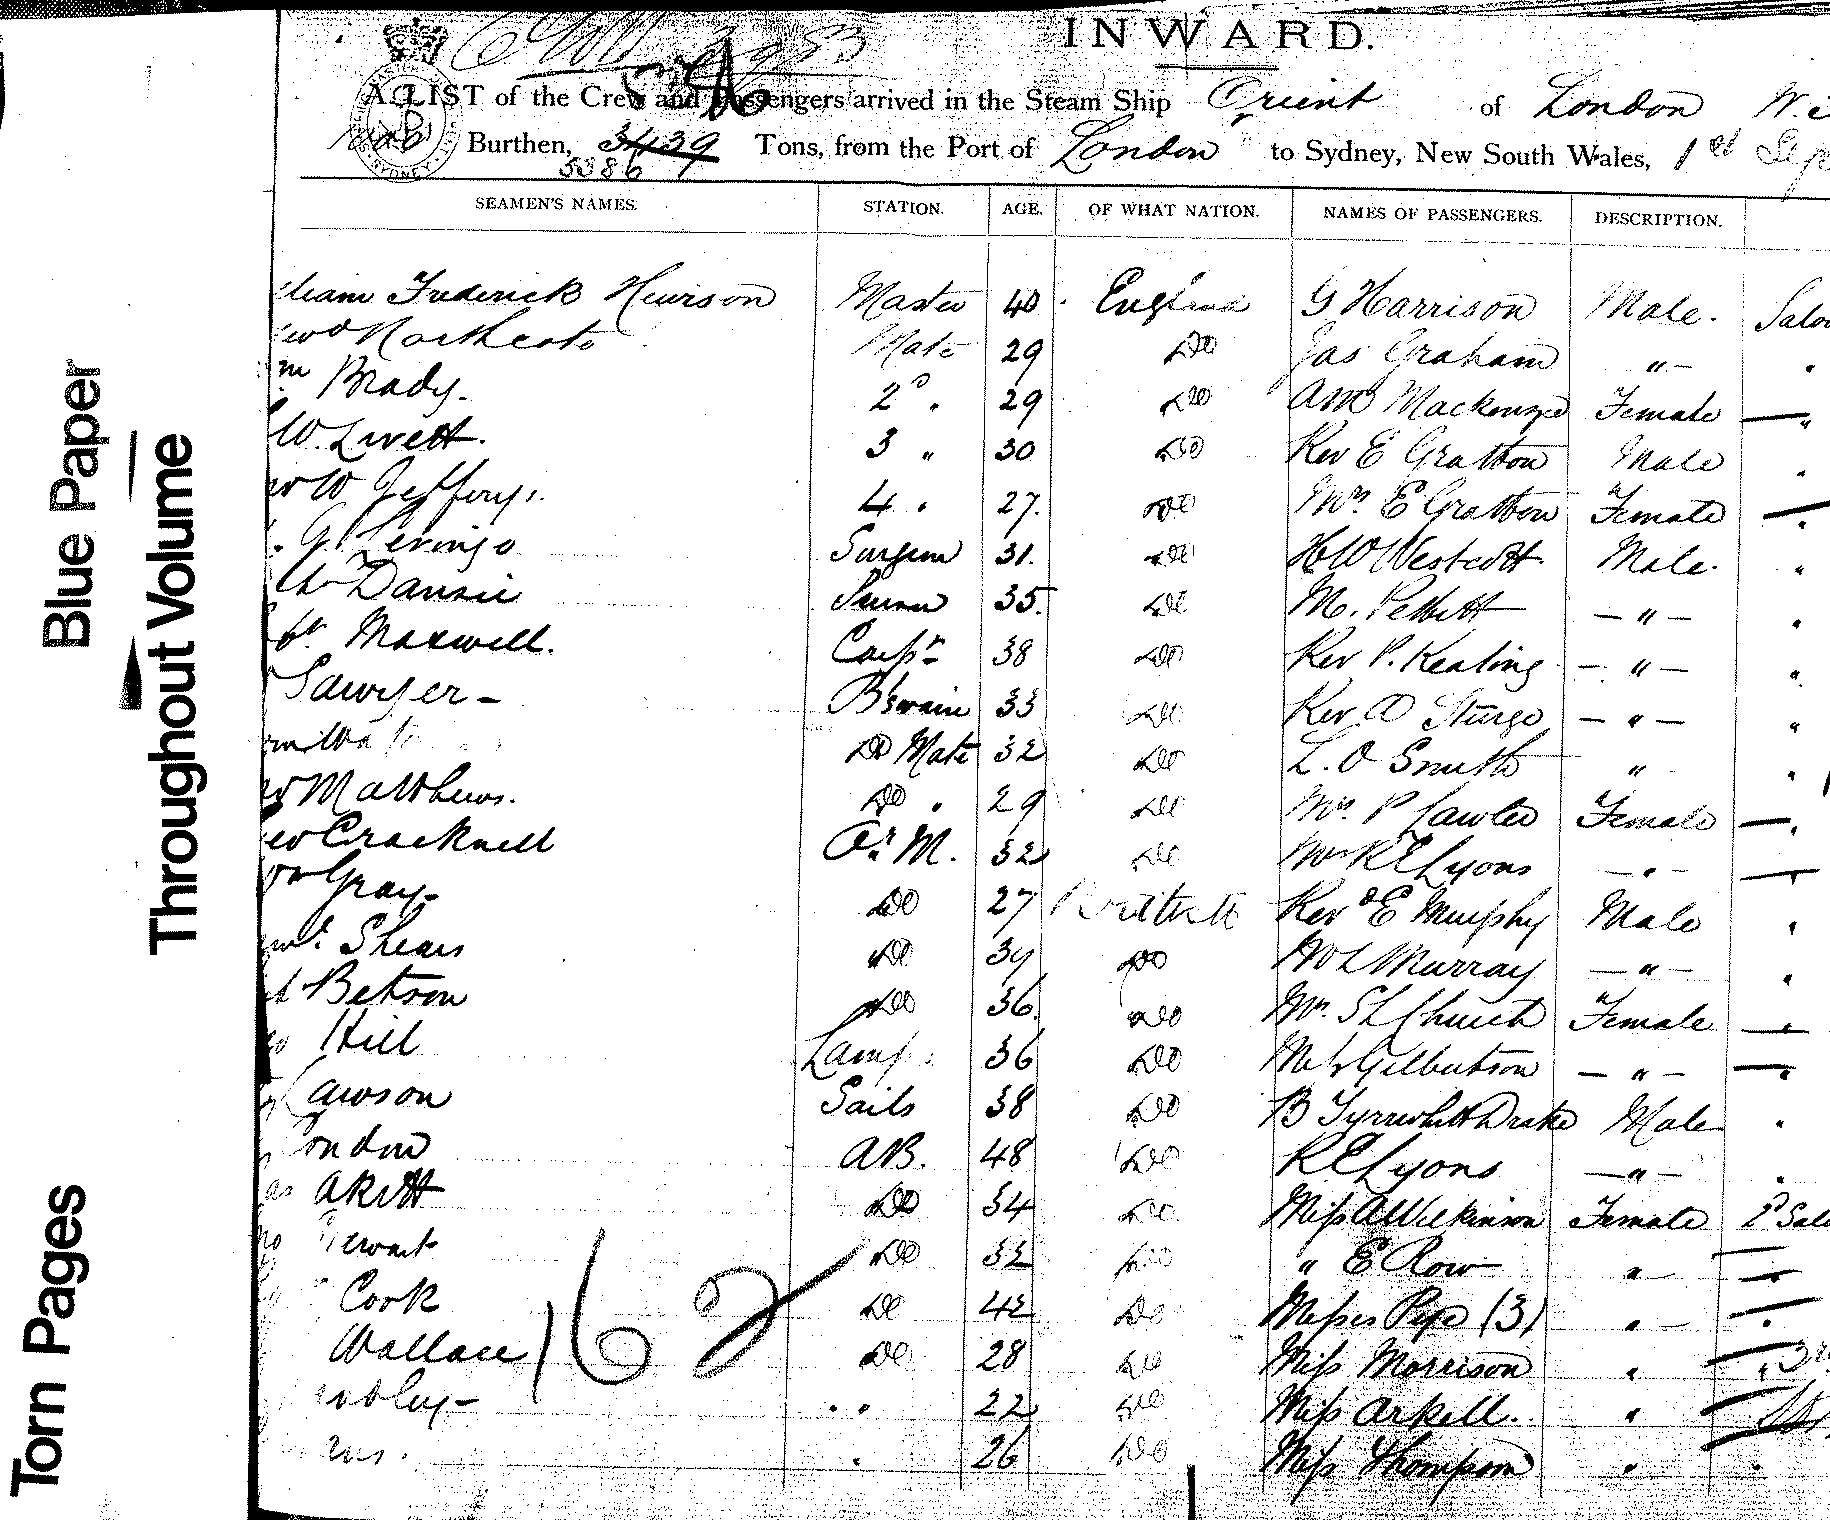 INWARD.
A LIST of the Crew and Passengers arrived in the Steam Ship Orient of London
Burthen, 3439 Tons, from the Port of London to Sydney, New South Wales, 1st Sep
5386
SEAMEN'S NAMES. STATION. AGE. OF WHAT NATION. NAMES OF PASSENGERS. DESCRIPTION.
Frederick Hewison Master 40 England G Harrison Male. Saloo
Northcote Mate 29 Do Jas Graham "
Brady. 2d " 29 Do Mackenzie Female "
W. Livett. 3 " 30 Do Rev E Gratton Male "
W Jefferys. 4 " 27. Do Mrs E Gratton Female "
Surgeon 31. Do H W Westcott Male. "
Dansie 35. Do M. Pettitt "
Maxwell. Carpr 38 Do Rev P. Keating "
Sawyer B'swain 33 Do Rev A Sturge "
Do Mate 32 Do L. O Smith "
Matthews. Do " 29 Do Mrs P Lawler Female "
Cracknell Qr. M. 32 Do Mrs R E Lyons "
Gray Do 27 British Revd E Murphy Male "
Shears Do 39 Do Murray "
Betson Do 36. Do Mrs Church Female "
Hill Lamp 36 Do Gilbertson "
Lawson Sails 38 Do B Tyrrwhitt Drake Male "
London AB. 48 Do R E Lyons "
Do 34 Do Miss A Wilkinson Female 2d Salo
Do 32 Do " E Row "
Cook Do 42 Do Misses Pepe (3) "
Wallace Do 28 Do Miss Morrison "
" 22 Do Miss Arkell. "
" 26 Do Miss Thompson "
162
Blue Paper
Throughout Volume
Torn Pages